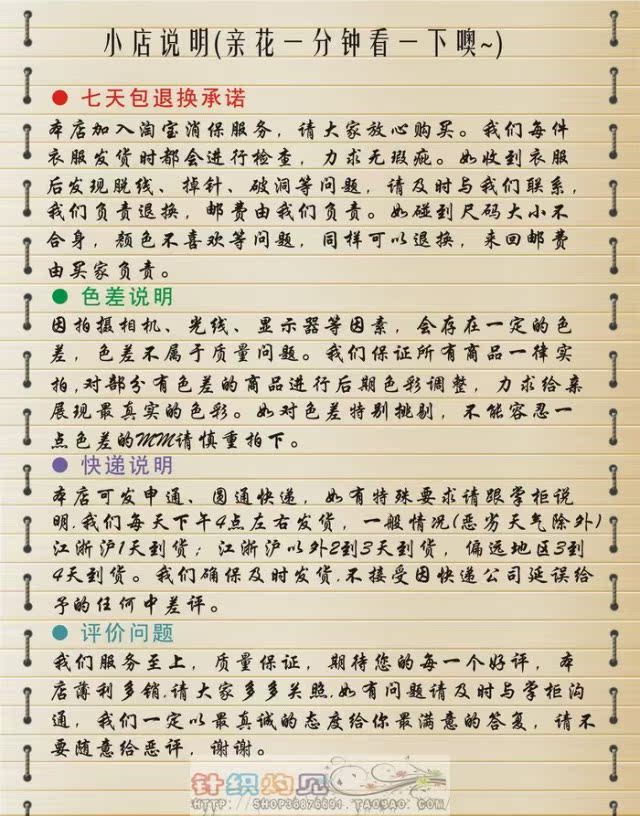 小店说明(亲花一分钟看一下噢~)
● 七天包退换承诺
本店加入淘宝消保服务，请大家放心购买。我们每件
衣服发货时都会进行检查，力求无瑕疵。如收到衣服
后发现脱线、掉针、破洞等问题，请及时与我们联系，
我们负责退换，邮费由我们负责。如碰到尺码大小不
合身，颜色不喜欢等问题，同样可以退换，来回邮费
由买家负责。
● 色差说明
因拍摄相机、光线、显示器等因素，会存在一定的色
差，色差不属于质量问题。我们保证所有商品一律实
拍,对部分有色差的商品进行后期色彩调整，力求给亲
展现最真实的色彩。如对色差特别挑剔，不能容忍一
点色差的MM请慎重拍下。
● 快递说明
本店可发申通、圆通快递，如有特殊要求请跟掌柜说
明,我们每天下午4点左右发货，一般情况(恶劣天气除外)
江浙沪1天到货；江浙沪以外2到3天到货，偏远地区3到
4天到货。我们确保及时发货,不接受因快递公司延误给
予的任何中差评。
● 评价问题
我们服务至上，质量保证，期待您的每一个好评，本
店薄利多销,请大家多多关照,如有问题请及时与掌柜沟
通，我们一定以最真诚的态度给你最满意的答复，请不
要随意给恶评，谢谢。
针织灼见
HTTP://SHOP36876691.TAOBAO.COM/